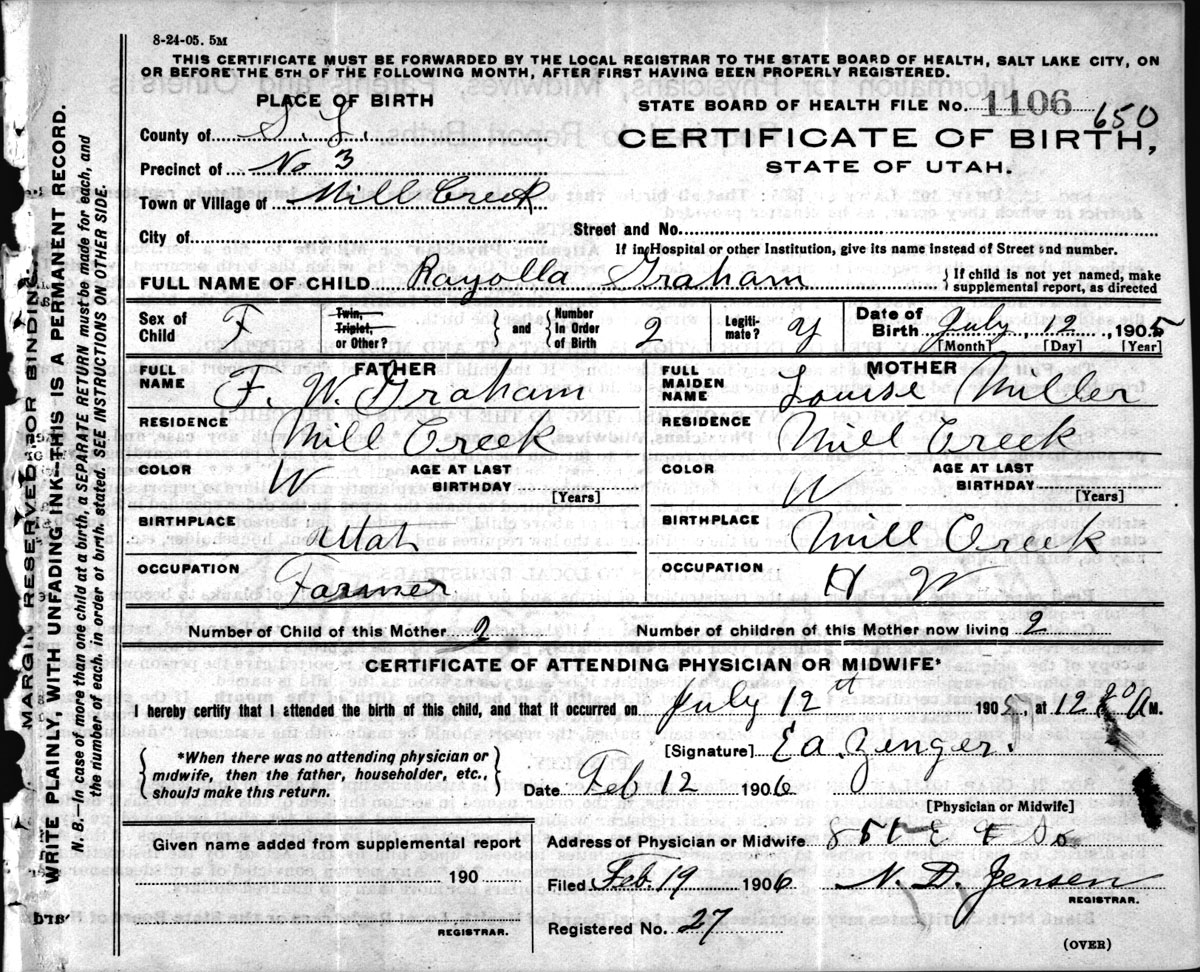 8-24-05. 5M
THIS CERTIFICATE MUST BE FORWARDED BY THE LOCAL REGISTRAR TO THE STATE BOARD OF HEALTH, SALT LAKE CITY, ON
OR BEFORE THE 5TH OF THE FOLLOWING MONTH, AFTER FIRST HAVING BEEN PROPERLY REGISTERED.
PLACE OF BIRTH
STATE BOARD OF HEALTH FILE No. 1106 650
County of S. L.
CERTIFICATE OF BIRTH,
Precinct of No 3
STATE OF UTAH.
Town or Village of Mill Creek
City of
Street and No.
If in Hospital or other Institution, give its name instead of Street and number.
FULL NAME OF CHILD Rayolla Graham
If child is not yet named, make
supplemental report, as directed
Sex of Child F
Twin, Triplet, or Other?
and
Number In Order of Birth 2
Legitimate? y
Date of Birth July 12 1905
[Month] [Day] [Year]
FATHER
FULL NAME F. W. Graham
MOTHER
FULL MAIDEN NAME Louise Miller
RESIDENCE Mill Creek
RESIDENCE Mill Creek
COLOR W AGE AT LAST BIRTHDAY [Years]
COLOR W AGE AT LAST BIRTHDAY [Years]
BIRTHPLACE Utah
BIRTHPLACE Mill Creek
OCCUPATION Farmer
OCCUPATION H W
Number of Child of this Mother 2
Number of children of this Mother now living 2
CERTIFICATE OF ATTENDING PHYSICIAN OR MIDWIFE*
I hereby certify that I attended the birth of this child, and that it occurred on July 12th 1905 at 12 A M.
*When there was no attending physician or
midwife, then the father, householder, etc.,
should make this return.
[Signature] E. A. Zenger.
Date Feb 12 1906
[Physician or Midwife]
Given name added from supplemental report
190
REGISTRAR.
Address of Physician or Midwife
Filed Feb. 19 1906 N. D. Jensen
REGISTRAR.
Registered No. 27
(OVER)
MARGIN RESERVED FOR BINDING.
WRITE PLAINLY, WITH UNFADING INK—THIS IS A PERMANENT RECORD.
N. B.—In case of more than one child at a birth, a SEPARATE RETURN must be made for each, and
the number of each, in order of birth, stated. SEE INSTRUCTIONS ON OTHER SIDE.